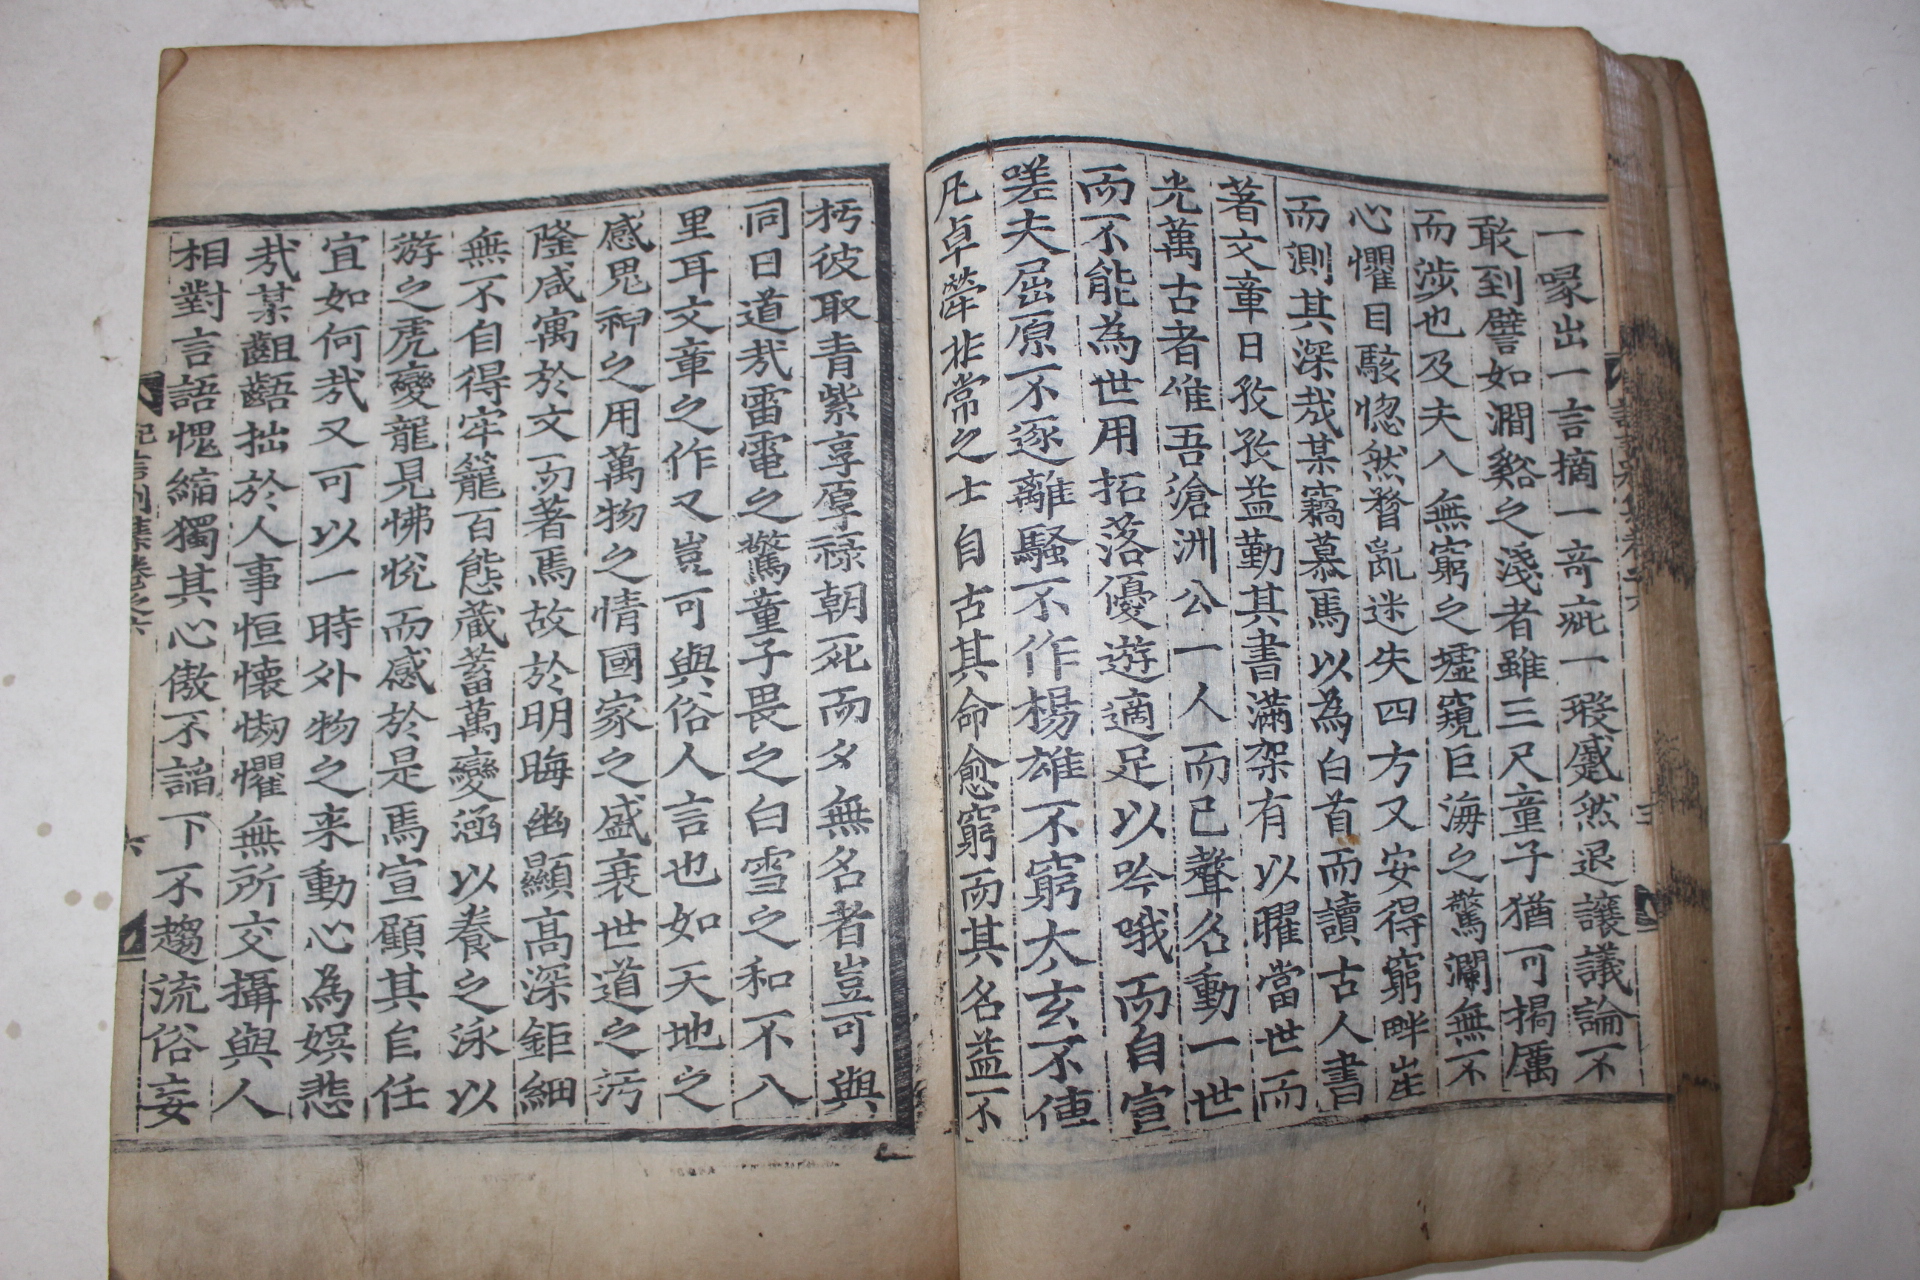 一喙出一言摘一奇疵一瑕蹙然退讓議論不
敢到譬如澗谿之淺者雖三尺童子猶可揭厲
而涉也及夫入無窮之墟窺巨海之驚瀾無不
心懼目駭惚然瞀亂迷失四方又安得窮畔崖
而測其深㢤某竊慕焉以為白首而讀古人書
著文章日孜孜益勤其書滿架有以曜當世而
光萬古者唯吾滄洲公一人而已聲名動一世
而不能為世用拓落優遊適足以吟哦而自宣
嗟夫屈原不逐離騷不作楊雄不窮太玄不傳
凡卓犖非常之士自古其命愈窮而其名益不
朽彼取青紫享厚祿朝死而夕無名者豈可與
同日道㢤雷電之驚童子畏之白雪之和不入
里耳文章之作又豈可與俗人言也如天地之
感鬼神之用萬物之情國家之盛衰世道之汚
隆咸寓於文而著焉故於明晦幽顯高深鉅細
無不自得牢籠百態藏蓄萬變涵以養之泳以
游之虎變龍見怫悅而感於是焉宣顧其自任
宜如何㢤又可以一時外物之来動心為娛悲
㢤某齟齬拙於人事恒懷惴懼無所交攝與人
相對言語愧縮獨其心傲不諂下不趨流俗妄
記言別集卷之六
六